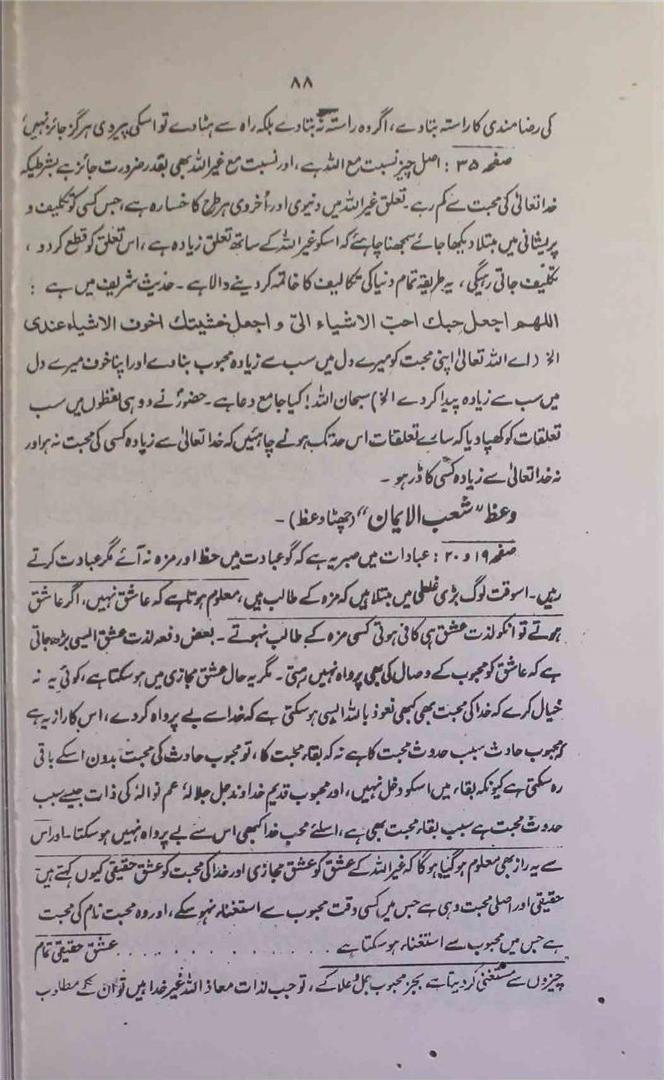 ۸۸
کی رضامندی کا راستہ بتادے، اگر وہ راستہ نہ بتادے بلکہ راہ سے ہٹادے تو اسکی پیروی ہرگز جائز نہیں،
صفحہ ۳۵ : اصل چیز نسبت مع اللہ ہے، اور نسبت مع غیراللہ بھی بقدر ضرورت جائز ہے بشرطیکہ
خدا تعالیٰ کی محبت سے کم رہے ۔ تعلق غیراللہ میں دنیوی اور اُخروی ہر طرح کا خسارہ ہے، جس کسی کو تکلیف و
پریشانی میں مبتلا دیکھا جائے سمجھنا چاہئے کہ اسکو غیراللہ کے ساتھ تعلق زیادہ ہے، اس تعلق کو قطع کردو،
تکلیف جاتی رہیگی، یہ طریقہ تمام دنیا کی تکالیف کا خاتمہ کردینے والا ہے ۔ حدیث شریف میں ہے :
اللهم اجعل حبك احبّ الاشياء الىّ و اجعل خشيتك اخوف الاشياء عندى
الخ (اے اللہ تعالیٰ اپنی محبت کو میرے دل میں سب سے زیادہ محبوب بنادے اور اپنا خوف میرے دل
میں سب سے زیادہ پیدا کردے الخ) سبحان اللہ! کیا جامع دعا ہے ۔ حضورؐ نے دو ہی لفظوں میں سب
تعلقات کو کھپا دیا کہ سارے تعلقات اس حد تک ہونے چاہئیں کہ خدا تعالیٰ سے زیادہ کسی کی محبت نہ ہو اور
نہ خدا تعالیٰ سے زیادہ کسی کا ڈر ہو ۔
وعظ “شعب الایمان” (چھٹا وعظ) ۔
صفحہ ۱۹ و ۲۰ : عبادات میں صبر یہ ہے کہ گو عبادت میں حظ اور مزہ نہ آئے مگر عبادت کرتے
رہیں ۔ اسوقت لوگ بڑی غلطی میں مبتلا ہیں کہ مزہ کے طالب ہیں، معلوم ہوتا ہے کہ عاشق نہیں، اگر عاشق
ہوتے تو انکو لذت عشق ہی کافی ہوتی کسی مزہ کے طالب نہوتے ۔ بعض دفعہ لذت عشق ایسی بڑھ جاتی
ہے کہ عاشق کو محبوب کے وصال کی بھی پرواہ نہیں رہتی ۔ مگر یہ حال عشق مجازی میں ہو سکتا ہے، کوئی یہ نہ
خیال کرے کہ خدا کی محبت بھی کبھی نعوذ باللہ ایسی ہو سکتی ہے کہ خدا سے بے پرواہ کردے، اس کا راز یہ ہے
کہ محبوب حادث سبب حدوث محبت کا ہے نہ کہ بقاء محبت کا، تو محبوب حادث کی محبت بدون اسکے باقی
رہ سکتی ہے کیونکہ بقاء میں اسکو دخل نہیں، اور محبوب قدیم خداوند جل جلالۂ عم نوالۂ کی ذات جیسے سبب
حدوث محبت ہے سبب بقاء محبت بھی ہے، اسلئے محب خدا کبھی اس سے بے پرواہ نہیں ہو سکتا ۔ اور اس
سے یہ راز بھی معلوم ہو گیا ہوگا کہ غیراللہ کے عشق کو عشق مجازی اور خدا کی محبت کو عشق حقیقی کیوں کہتے ہیں
حقیقی اور اصلی محبت وہی ہے جس میں کسی وقت محبوب سے استغناء نہو سکے، اور وہ محبت نام کی محبت
ہے جس میں محبوب سے استغناء ہو سکتا ہے . . . . . . . . . . . . . عشق حقیقی تمام
چیزوں سے مستغنی کر دیتا ہے بجز محبوب جل و علا کے، تو جب لذات معاذ اللہ غیر خدا ہیں تو ان کے مطلوب